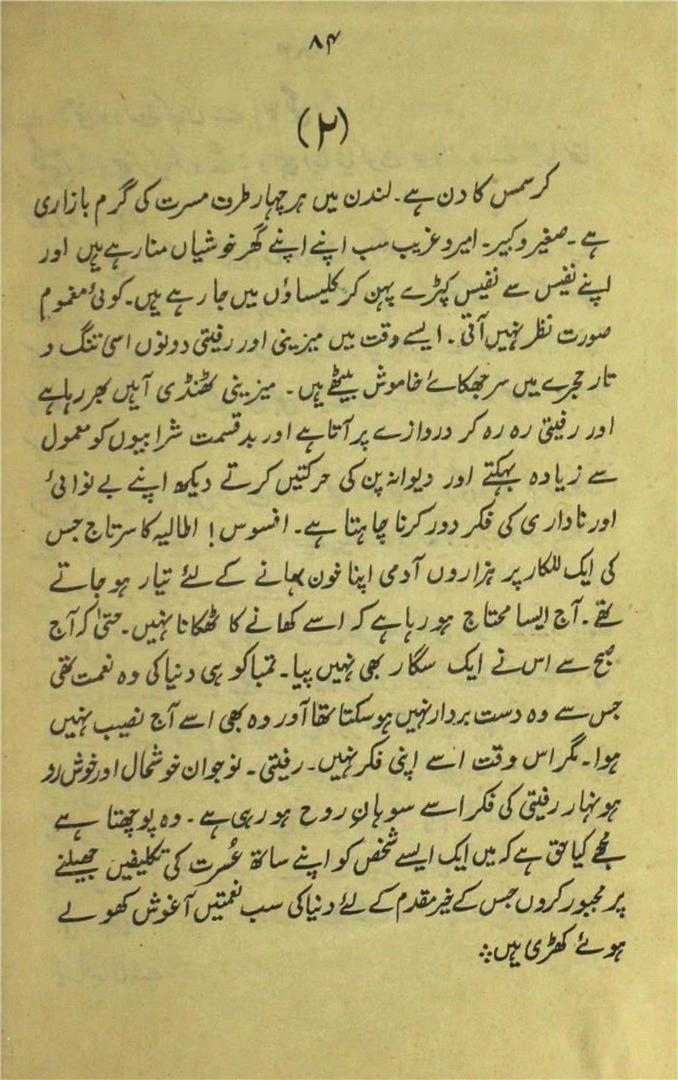 ۸۴
(۲)
کرسمس کا دن ہے۔ لندن میں ہر چہار طرف مسرت کی گرم بازاری
ہے۔ صغیر و کبیر۔ امیر و غریب سب اپنے اپنے گھر خوشیاں منا رہے ہیں اور
اپنے نفیس سے نفیس کپڑے پہن کر کلیساؤں میں جا رہے ہیں۔ کوئی مغموم
صورت نظر نہیں آتی۔ ایسے وقت میں میزینی اور رفیتی دونوں اسی تنگ و
تار حجرے میں سر جھکائے خاموش بیٹھے ہیں۔ میزینی ٹھنڈی آہیں بھر رہا ہے
اور رفیتی رہ رہ کر دروازے پر آتا ہے اور بدقسمت شرابیوں کو معمول
سے زیادہ بہکتے اور دیوانہ پن کی حرکتیں کرتے دیکھ اپنے بے نوائی
اور ناداری کی فکر دور کرنا چاہتا ہے۔ افسوس! اطالیہ کا سرتاج جس
کی ایک للکار پر ہزاروں آدمی اپنا خون بہانے کے لئے تیار ہو جاتے
تھے۔ آج ایسا محتاج ہو رہا ہے کہ اسے کھانے کا ٹھکانا نہیں۔ حتیٰ کہ آج
صبح سے اس نے ایک سگار بھی نہیں پیا۔ تمباکو ہی دنیا کی وہ نعمت تھی
جس سے وہ دست بردار نہیں ہو سکتا تھا اور وہ بھی اسے آج نصیب نہیں
ہوا۔ مگر اس وقت اسے اپنی فکر نہیں۔ رفیتی۔ نوجوان خوشحال اور خوش رو
ہونہار رفیتی کی فکر اسے سوہانِ روح ہو رہی ہے۔ وہ پوچھتا ہے
مجھے کیا حق ہے کہ میں ایک ایسے شخص کو اپنے ساتھ عُسرت کی تکلیفیں جھیلنے
پر مجبور کروں جس کے خیر مقدم کے لئے دنیا کی سب نعمتیں آغوش کھولے
ہوئے کھڑی ہیں؞